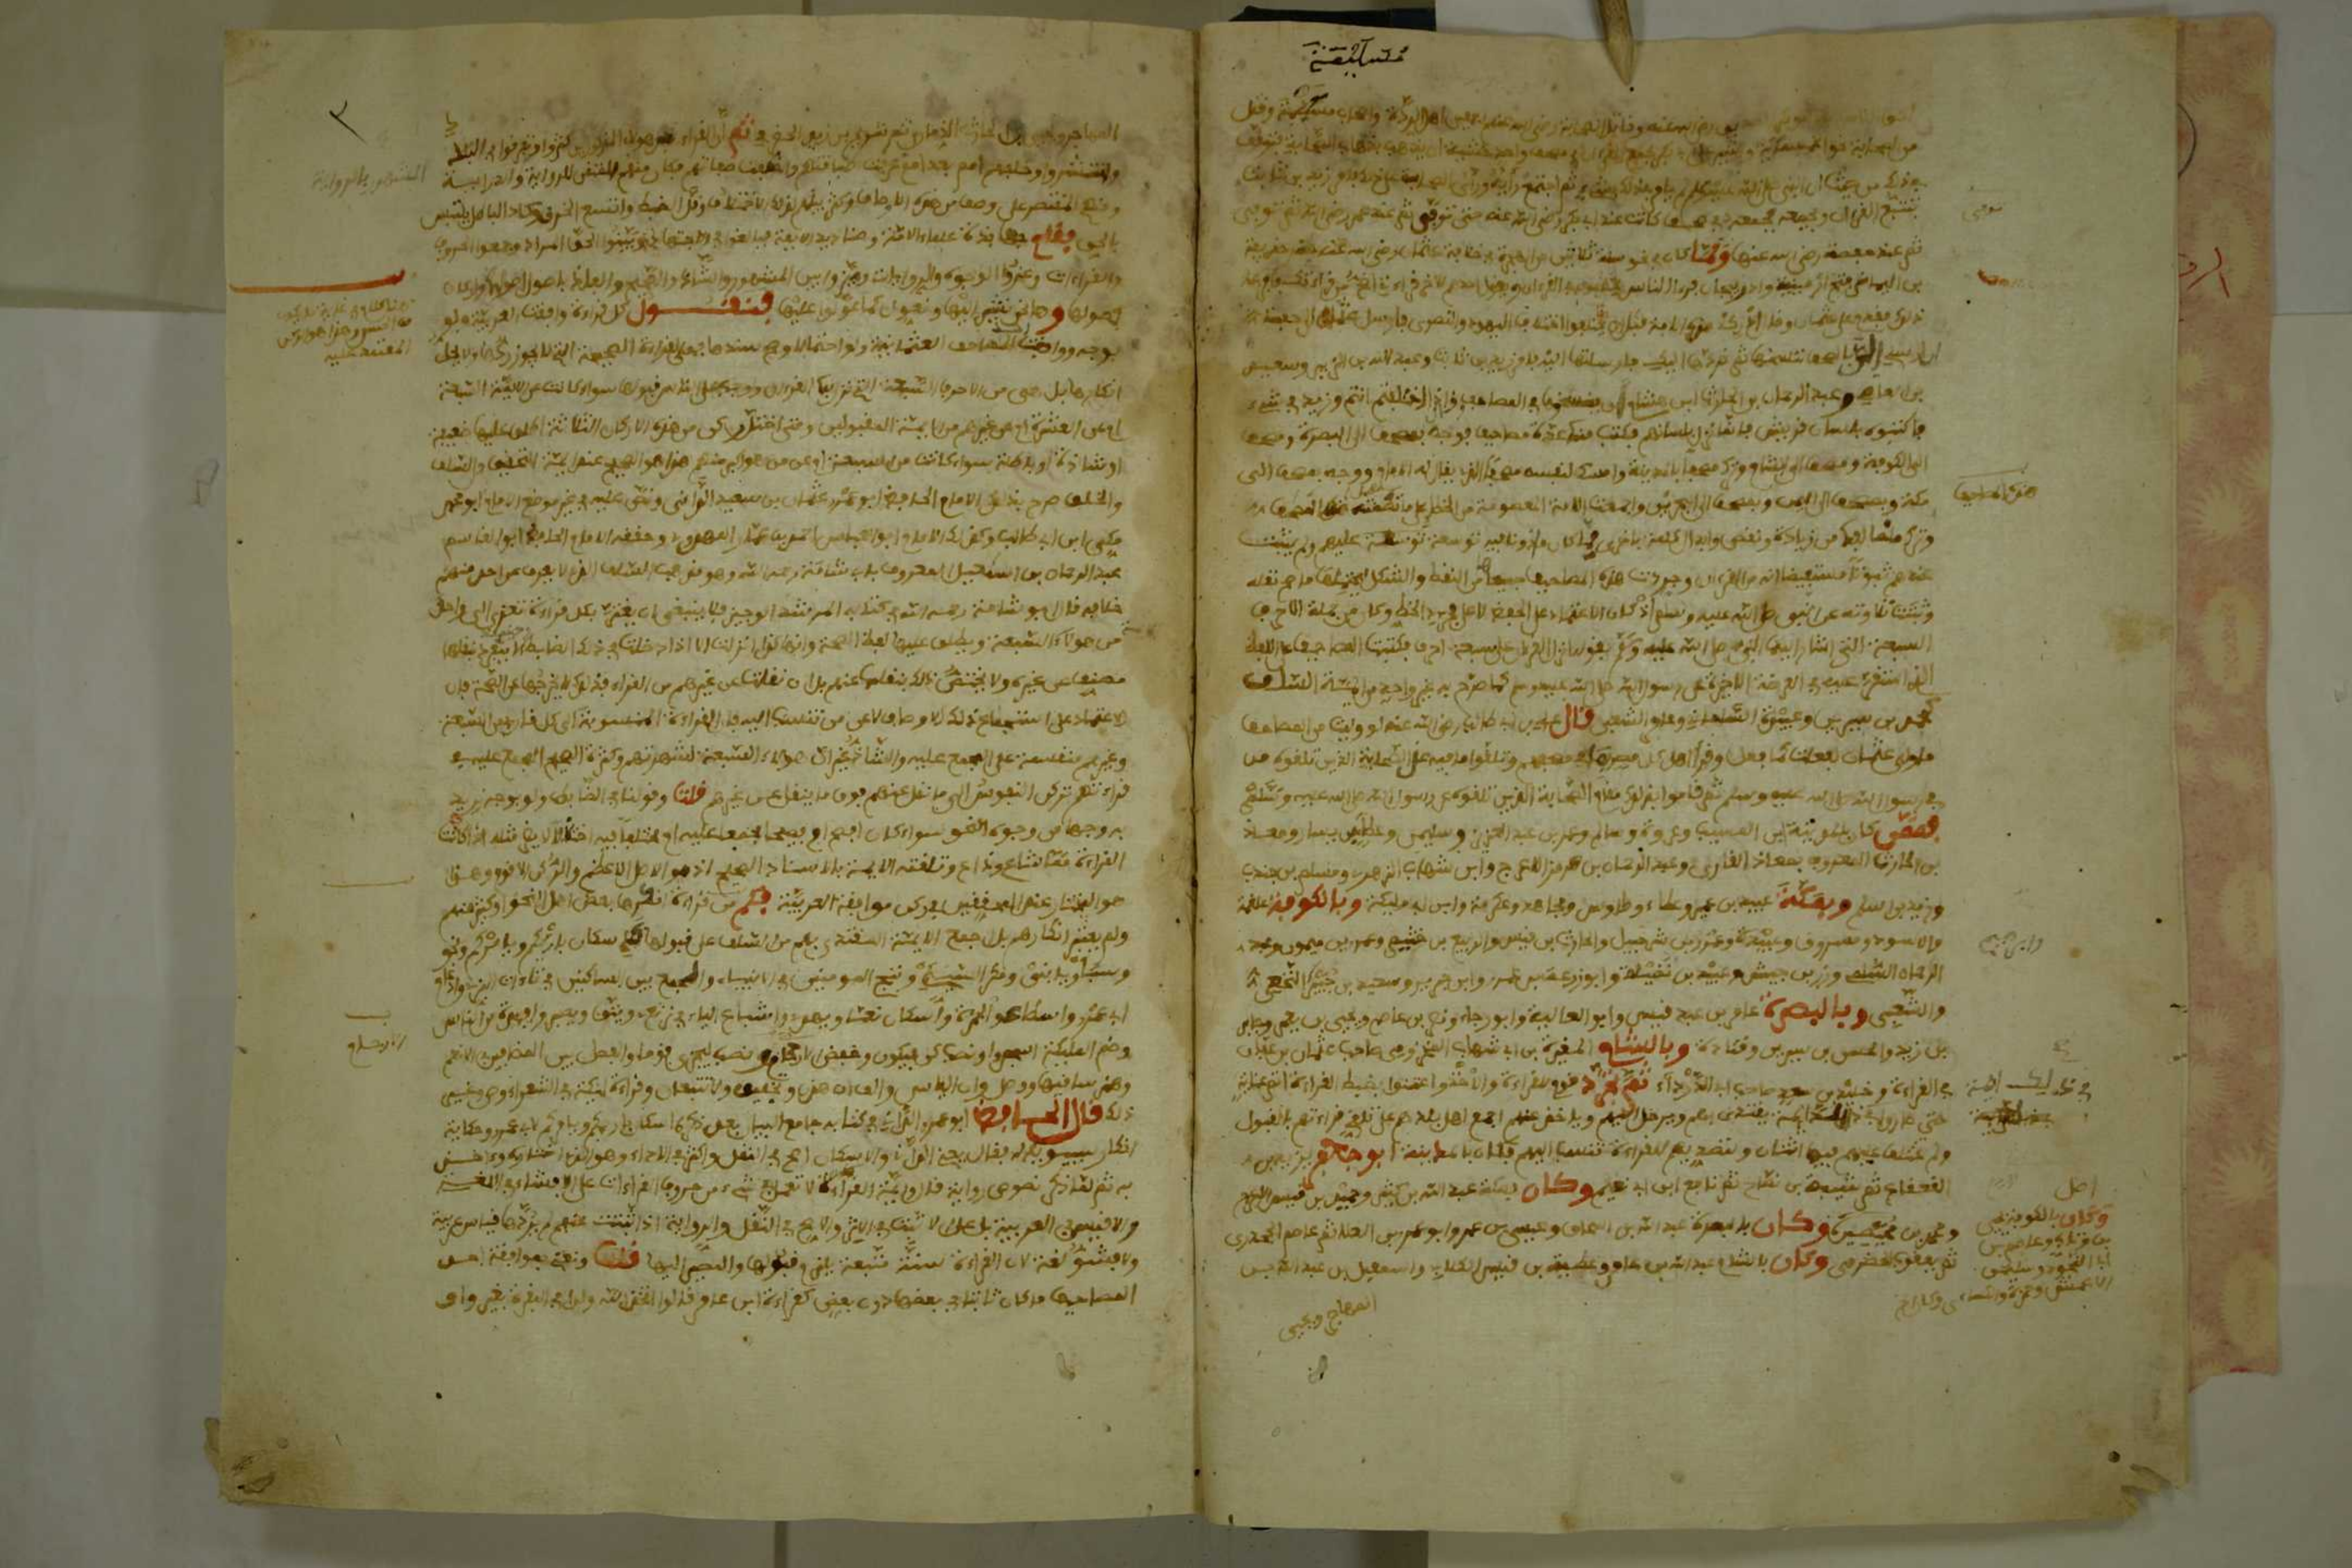 مسيلمة
من الصحابة نحو الخمسمائة
في ذلك من حيث ان النبي صلى الله عليه وسلم لم يامر في ذلك بشيء ثم اجتمع رايه وراي الصحابة على ذلك فامر زيد بن ثابت
بتتبع القران وجمعه فجمعه في صحف كانت عند ابي بكر رضي الله عنه حتى توفي ثم عند عمر رضي الله عنه حتى توفي
ثم عند حفصة رضي الله عنها ولما كان في نحو سنة ثلاثين من الهجرة في خلافة عثمان رضي الله عنه حضر حذيفة
بن اليمان فتح ارمينية واذربيجان فراى الناس يختلفون في القران ويقول احدهم للاخر قراءتي اصح من قراءتك فافزعه
ذلك فقدم على عثمان وقال ادرك هذه الامة قبل ان يختلفوا اختلاف اليهود والنصارى فارسل عثمان الى حفصة
ان ارسلي الينا بالصحف ننسخها ثم نردها اليك فارسلتها اليه فامر زيد بن ثابت وعبد الله بن الزبير وسعيد
بن العاص وعبد الرحمان بن الحارث ابن هشام ان ينسخوها في المصاحف وقال اذا اختلفتم انتم وزيد في شيء
فاكتبوه بلسان قريش فانما نزل بلسانهم فكتب منها عدة مصاحف فوجه بمصحف الى البصرة ومصحف
الى الكوفة ومصحف الى الشام وترك مصحفا بالمدينة وامسك لنفسه مصحفا الذي يقال له الامام ووجه بمصحف الى
مكة وبمصحف الى اليمن وبمصحف الى البحرين واجمعت الامة المعصومة من الخطا على ما تضمنته هذه المصاحف
هذه المصاحف
وترك ما خالفها من زيادة ونقص وابدال كلمة باخرى مما كان ماذونا فيه توسعة عليهم ولم يثبت
عندهم ثبوتا مستفيضا انه من القران وجردت هذه المصاحف جميعها من النقط والشكل ليحتملها ما صح نقله
وثبتت تلاوته عن النبي صلى الله عليه وسلم اذ كان الاعتماد على الحفظ لا على مجرد الخط وكان من جملة الاحرف
السبعة التي اشار اليها النبي صلى الله عليه وسلم بقوله انزل القران على سبعة احرف فكتبت المصاحف على اللفظ
الذي استقر عليه في العرضة الاخيرة عن رسول الله صلى الله عليه وسلم كما صرح به غير واحد من ائمة السلف
كمحمد بن سيرين وعبيدة السلماني وعامر الشعبي قال علي بن ابي طالب رضي الله عنه لو وليت من المصاحف
ما ولي عثمان لفعلت كما فعل وقرا اهل كل مصر بما في مصحفهم وتلقوا ما فيه عن الصحابة الذين تلقوه من
في رسول الله صلى الله عليه وسلم ثم قاموا بذلك مقام الصحابة الذين تلقوه عن رسول الله صلى الله عليه وسلم
فممن كان بالمدينة ابن المسيب وعروة وسالم وعمر بن عبد العزيز وسليمن وعطاء بن يسار ومعاذ
بن الحارث المعروف بمعاذ القاري وعبد الرحمان بن هرمز الاعرج وابن شهاب الزهري ومسلم بن جندب
وزيد بن اسلم وبمكة عبيد بن عمير وعطاء وطاوس ومجاهد وعكرمة وابن ابي مليكة وبالكوفة علقمة
والاسود ومسروق وعبيدة وعمرو بن شرحبيل والحارث بن قيس والربيع بن خثيم وعمرو بن ميمون وعبد
الرحمان السلمي وزر بن حبيش وعبيد بن نضيلة وابو زرعة بن عمرو بن جرير وسعيد بن جبير النخعي
والشعبي وبالبصرة عامر بن عبد قيس وابو العالية وابو رجاء ونصر بن عاصم ويحيى بن يعمر وجابر
بن زيد والحسن بن سيرين وقتادة وبالشام المغيرة بن ابي شهاب المخزومي صاحب عثمان بن عفان
في القراءة وخليد بن سعد صاحب ابي الدرداء ثم تجرد قوم للقراءة والاخذ واعتنوا بضبط القراءة اتم عناية
حتى صاروا في ذلك ائمة يقتدى بهم ويرحل اليهم ويؤخذ عنهم اجمع اهل بلدهم على تلقي قراءتهم بالقبول
ولم يختلف عليهم فيها اثنان ولتصديهم للقراءة نسبت اليهم فكان بالمدينة ابو جعفر يزيد بن
القعقاع ثم شيبة بن نصاح ثم نافع ابن ابي نعيم وكان بمكة عبد الله بن كثير وحميد بن قيس الاعرج
ومحمد بن محيصن وكان بالبصرة عبد الله بن اسحاق وعيسى بن عمر وابو عمرو بن العلا ثم عاصم الجحدري
ثم يعقوب الحضرمي وكان بالشام عبد الله بن عامر وعطية بن قيس الكلابي واسمعيل بن عبد الله بن
وكان بالكوفة يحيى
بن وثاب وعاصم بن
ابي النجود وسليمن
الاعمش وحمزة والكسائي
المهاجر ويحيى
المهاجر ويحيى بن الحارث الذماري ثم شريح بن يزيد الحضرمي ثم ان القراء بعد هولاء المذكورين كثروا وتفرقوا في البلاد
وانتشروا وخلفهم امم بعد امم عرفت طبقاتهم واختلفت صفاتهم فكان منهم المتقن للرواية والدراية
المشهور بالرواية
ومنهم المقتصر على وصف من هذه الاوصاف وكثر بينهم لذلك الاختلاف وقل الضبط واتسع الخرق وكاد الباطل يلتبس
بالحق فقام جهابذة علماء الامة وصناديد الايمة فبالغوا في الاجتهاد وبينوا الحق المراد وجمعوا الحروف
والقراءات وعزوا الوجوه والروايات وميزوا بين المشهور والشاذ والصحيح والفاذ باصول اصلوها واركان
فصلوها وها نحن نشير اليها ونعول كما عولوا عليها فنقول كل قراءة وافقت العربية ولو
بوجه ووافقت احد المصاحف العثمانية ولو احتمالا وصح سندها فهي القراءة الصحيحة التي لا يجوز ردها ولا يحل
انكارها بل هي من الاحرف السبعة التي نزل بها القران ووجب على الناس قبولها سواء كانت عن الايمة السبعة
ام عن العشرة ام عن غيرهم من الايمة المقبولين ومتى اختل ركن من هذه الاركان الثلاثة اطلق عليها ضعيفة
او شاذة او باطلة سواء كانت من السبعة او عن من هو اكبر منهم هذا هو الصحيح عند ايمة التحقيق والسلف
والخلف صرح بذلك الامام الحافظ ابو عمرو عثمان بن سعيد الداني ونص عليه في غير موضع الامام ابو محمد
مكي ابن ابي طالب وكذلك الامام ابو العباس احمد بن عمار المهدوي وحققه الامام الحافظ ابو القاسم
عبد الرحمان بن اسمعيل المعروف بابي شامة رحمه الله وهو مذهب السلف الذي لا يعرف عن احد منهم
خلافه قال ابو شامة رحمه الله في كتابه المرشد الوجيز فلا ينبغي ان يغتر بكل قراءة تعزى الى واحد
من هولاء السبعة ويطلق عليها لفظ الصحة وانها كذلك انزلت الا اذا دخلت في ذلك الضابط وحينئذ لا ينفرد بنقلها
مصنف عن غيره ولا يختص ذلك بنقلها عنهم بل ان نقلت عن غيرهم من القراء فذلك لا يخرجها عن الصحة فان
الاعتماد على استجماع تلك الاوصاف لا عن من تنسب اليه فان القراءة المنسوبة الى كل قارئ من السبعة
وغيرهم منقسمة على المجمع عليه والشاذ غير ان هولاء السبعة لشهرتهم وكثرة الصحيح المجمع عليه في
قراءتهم تركن النفوس الى ما نقل عنهم فوق ما ينقل عن غيرهم قلت وقولنا في الضابط ولو بوجه نريد
به وجها من وجوه النحو سواء كان افصح ام فصيحا مجمعا عليه ام مختلفا فيه اختلافا لا يضر مثله اذا كانت
القراءة مما شاع وذاع وتلقته الايمة بالاسناد الصحيح اذ هو الاصل الاعظم والركن الاقوم وهذا
هو المختار عند المحققين في ركن موافقة العربية فكم من قراءة انكرها بعض اهل النحو او كثير منهم
ولم يعتبر انكارهم بل اجمع الايمة المقتدى بهم من السلف على قبولها كاسكان بارئكم ويامركم ونحو
وسبأ ويا بني ومكر السيئ وننجي المومنين في الانبياء والجمع بين الساكنين في تاءات البزي وادغام
ابي عمرو واسطاعوا لحمزة واسكان نعما ويهدي واشباع الياء في نرتعي ويتقي ويصبر وافئدة من الناس
وضم الملائكة اسجدوا ونصب كن فيكون وخفض الارحام ونصب ليجزي قوما والفصل بين المضافين في الانعام
وهمز ساقيها ووصل وان الياس والف ان هذان وتخفيف ولا تتبعان وقراءة ليكة في الشعراء وص وغير
ذلك قال الحافظ ابو عمرو الداني في كتابه جامع البيان بعد ذكر اسكان بارئكم ويامركم لابي عمرو وحكاية
انكار سيبويه له فقال يعني الداني والاسكان اصح في النقل واكثر في الاداء وهو الذي اختاره واخذ
به ثم لما ذكر نصوص رواته قال وايمة القراءة لا تعمل في شيء من حروف القران على الافشى في اللغة
والاقيس في العربية بل على الاثبت في الاثر والاصح في النقل والرواية اذا ثبتت عنهم لم يردها قياس عربية
ولا فشو لغة لان القراءة سنة متبعة يلزم قبولها والمصير اليها قلت ونعني بموافقة احد
المصاحف ما كان ثابتا في بعضها دون بعض كقراءة ابن عامر قالوا اتخذ الله ولدا في البقرة بغير واو